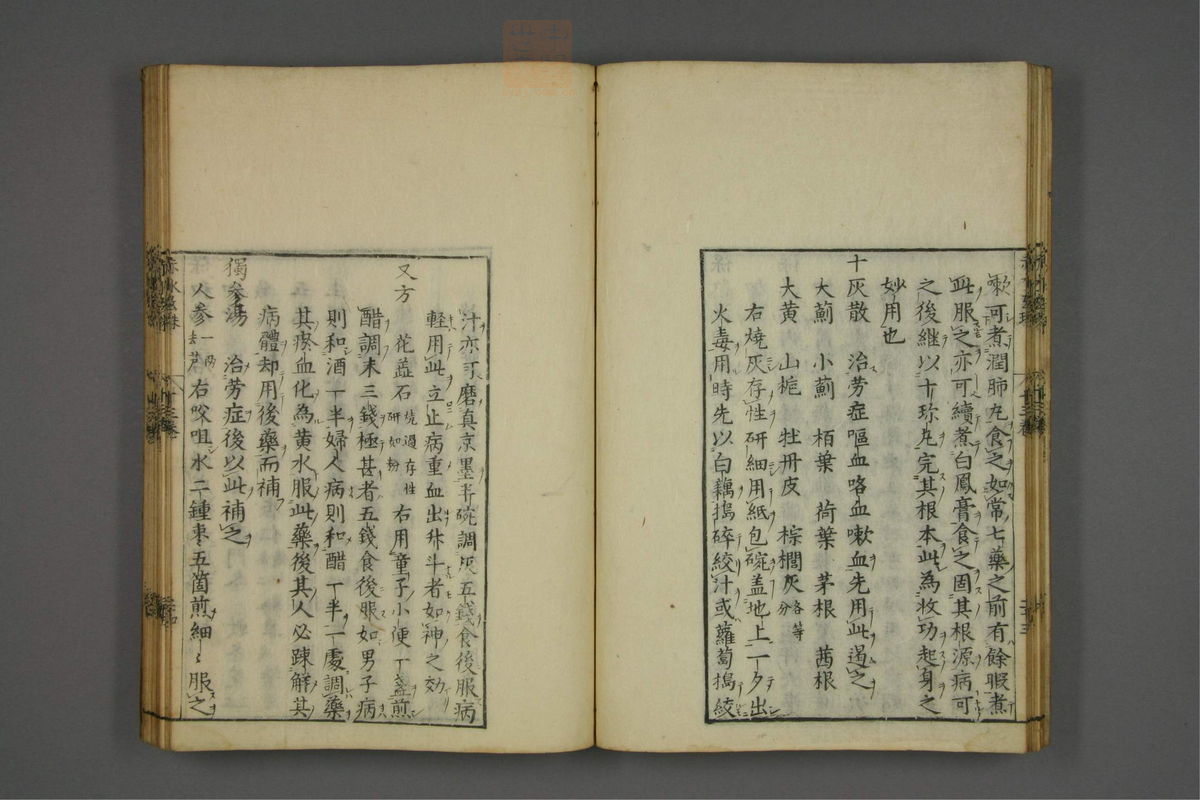 嗽可煮潤肺丸食之如常七藥之前有餘暇煮
此服之亦可續煮白鳳膏食之固其根源病可
之後継以十珎丸完其根本此為收功起身之
妙用也
十灰散 治労症嘔血咯血嗽血先用此遏之
大薊 小薊 栢葉 荷葉 茅根 茜根
大黄 山梔 牡丹皮 棕櫚灰各等分
右燒灰存性研細用紙包碗盖地上一夕出
火毒用時先以白藕搗碎絞汁或蘿蔔搗絞
汁亦可磨真京墨半碗調灰五錢食後服病
輕用此立止病重血出升斗者如神之効
又方 花蕋石燒過存性研如粉 右用童子小便一盞煎
醋調末三錢極甚者五錢食後服如男子病
則和酒一半婦人病則和醋一半一處調藥
其瘀血化為黄水服此藥後其人必踈解其
病體却用後藥而補
獨参湯 治労症後以此補之
人参一两去芦 右㕮咀水二鍾枣五箇煎細〻服之
十三卷